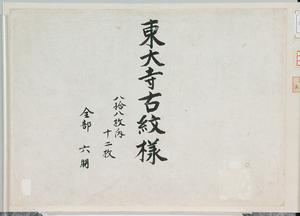 東大寺古紋様
八拾八枚内
十二枚
全部 六册